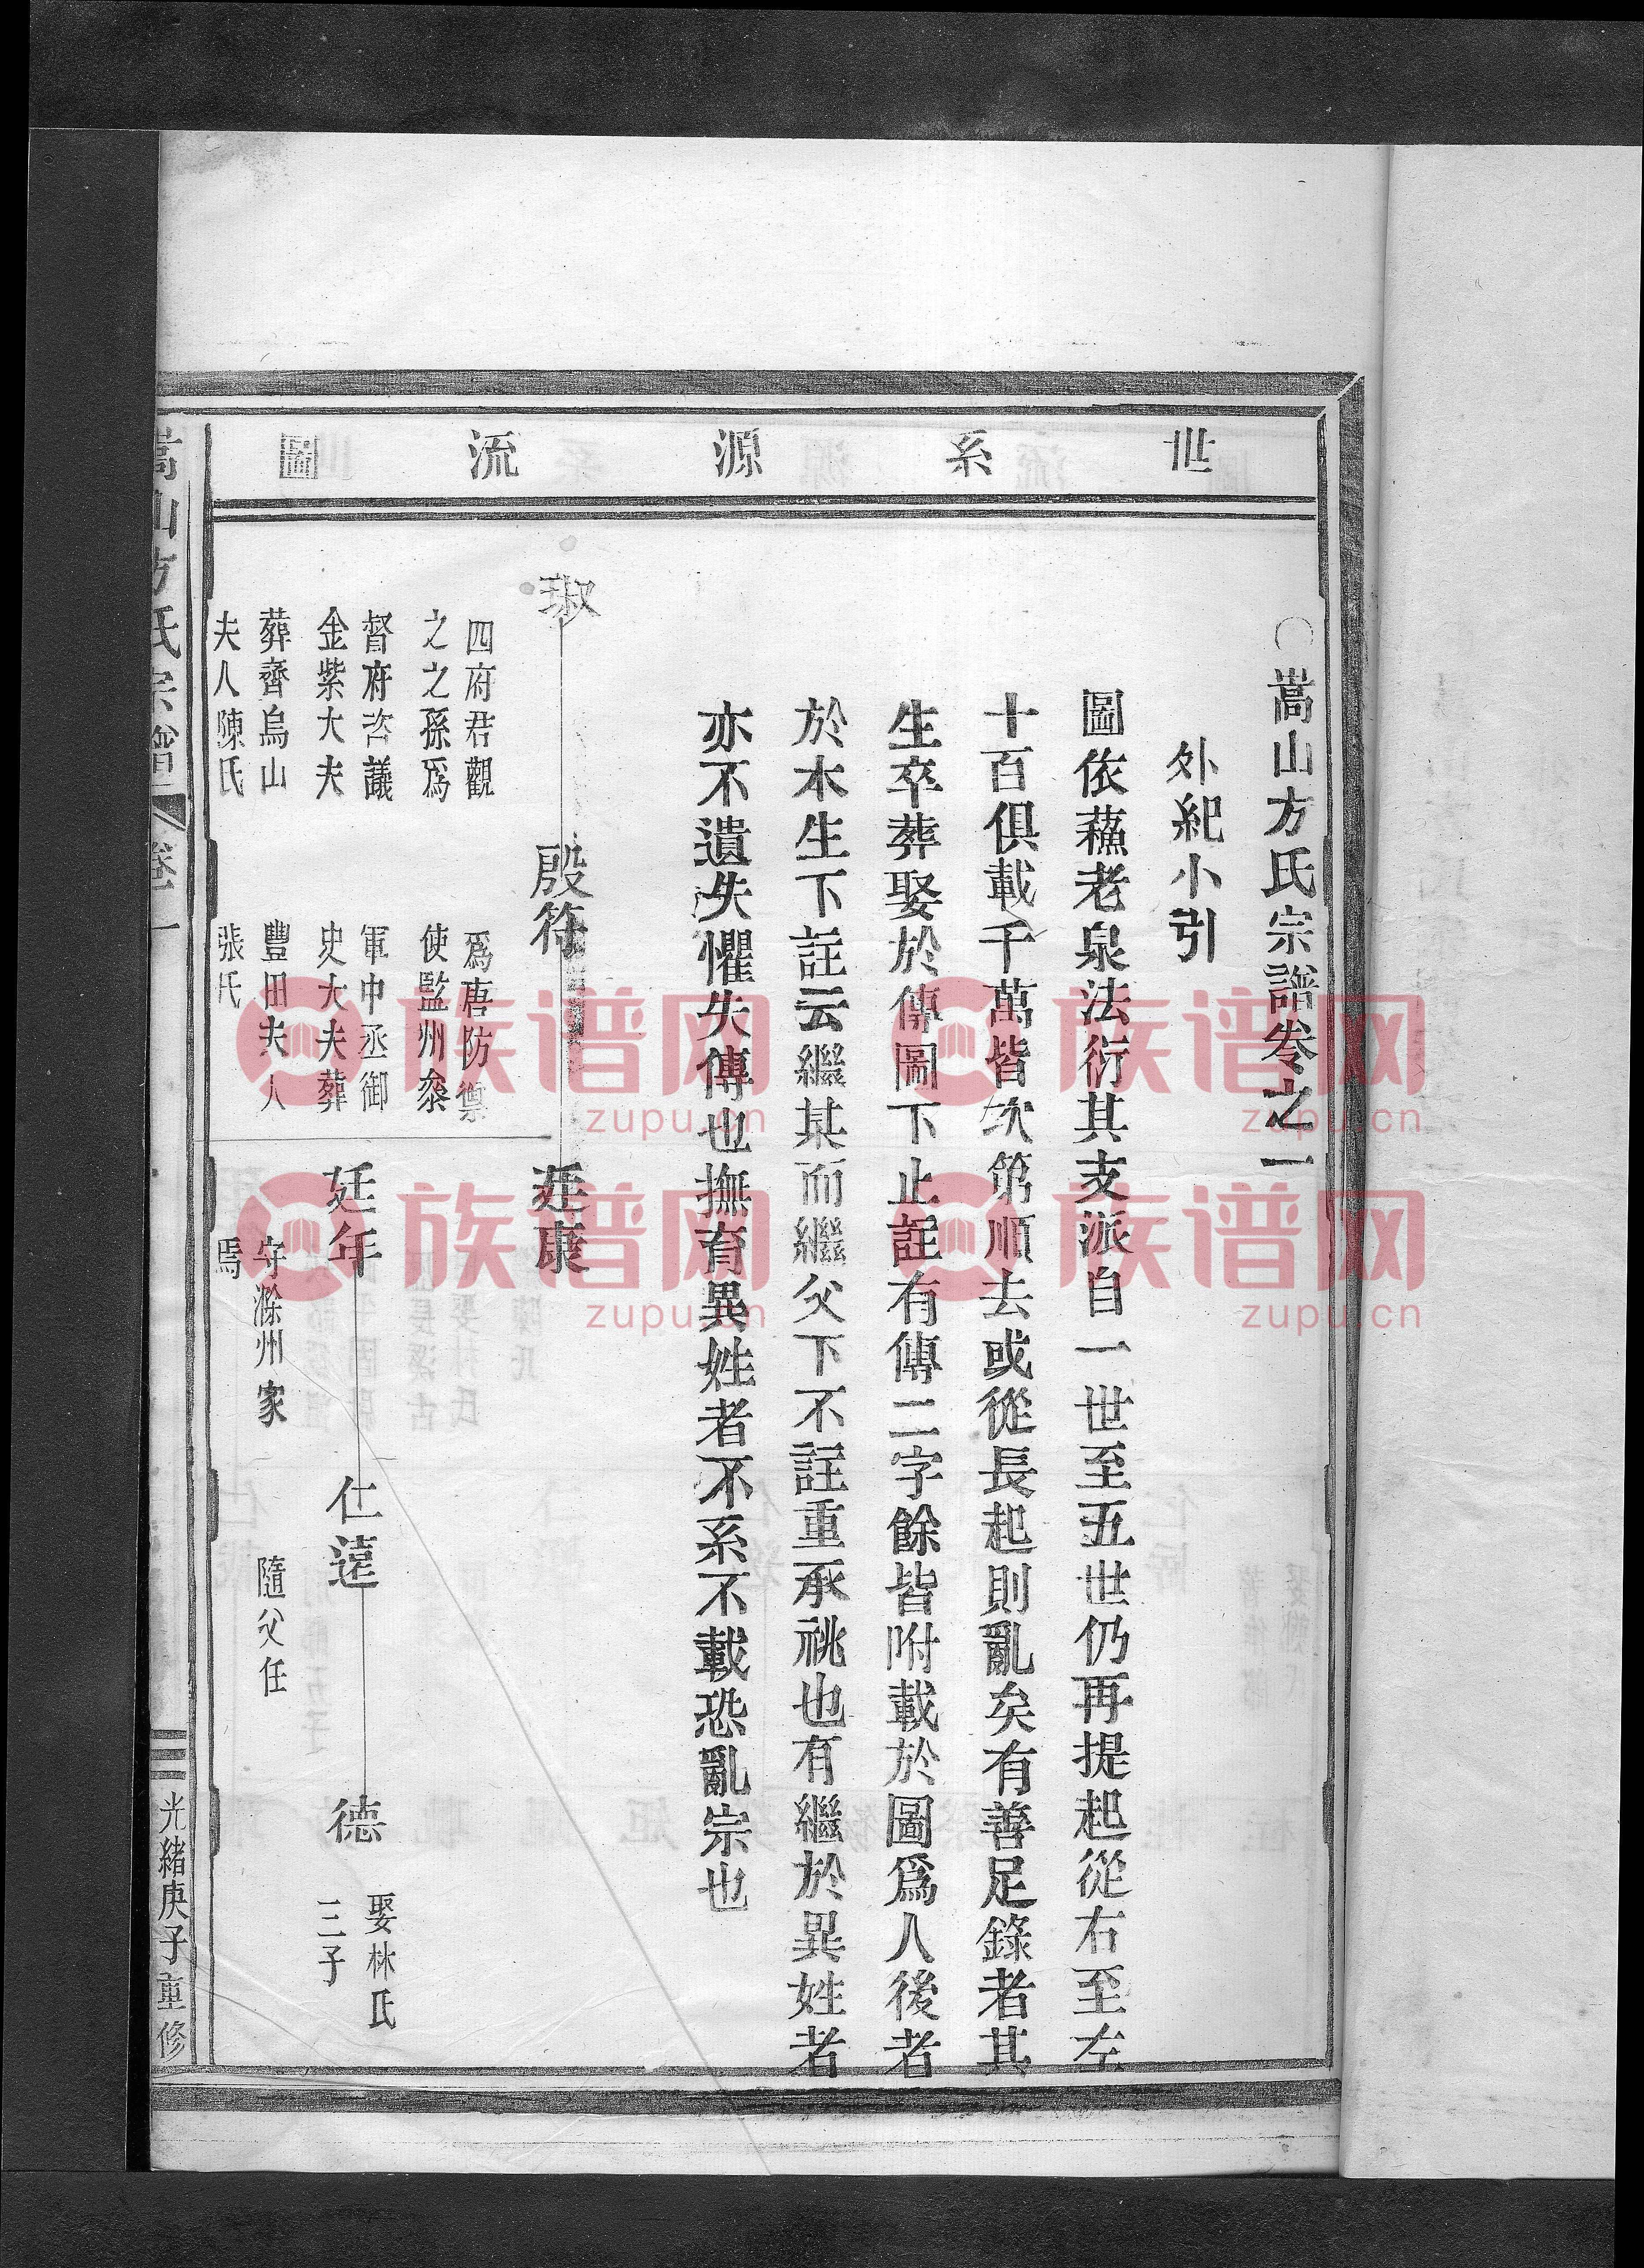 世系源流圖
○嵩山方氏宗譜卷之一
外紀小引
圖依蘓老泉法衍其支派自一世至五世仍再提起從右至左
十百俱載千萬皆次第順去或從長起則亂矣有善足錄者其
生卒葬娶於傳圖下止註有傳二字餘皆附載於圖爲人後者
於本生下註云繼某而繼父下不註重承祧也有繼於異姓者
亦不遺失懼失傳也撫育異姓者不系不載恐亂宗也
琡
四府君觀
之之孫爲
督府咨議
金紫大夫
葬齊烏山
夫人陳氏
殷符
爲唐防禦
使監州叅
軍中丞御
史大夫葬
豐田夫人
張氏
廷康
廷年
守滁州家
焉
仁遠
隨父任
德
娶林氏
三子
嵩山方氏宗譜
卷一
三
光緒庚子重修
族谱网
zupu.cn
族谱网
zupu.cn
族谱网
zupu.cn
族谱网
zupu.cn